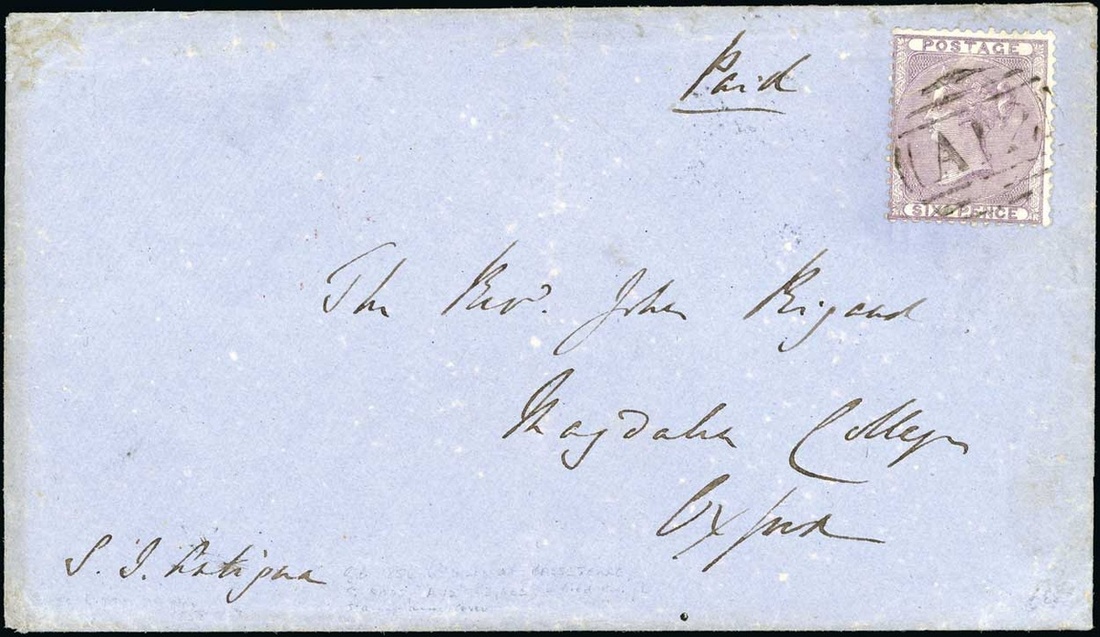 Paid
POSTAGE
A
SIX PENCE
The Revd. John Rigaud
Magdalen College
Oxford
S. J. Antigua